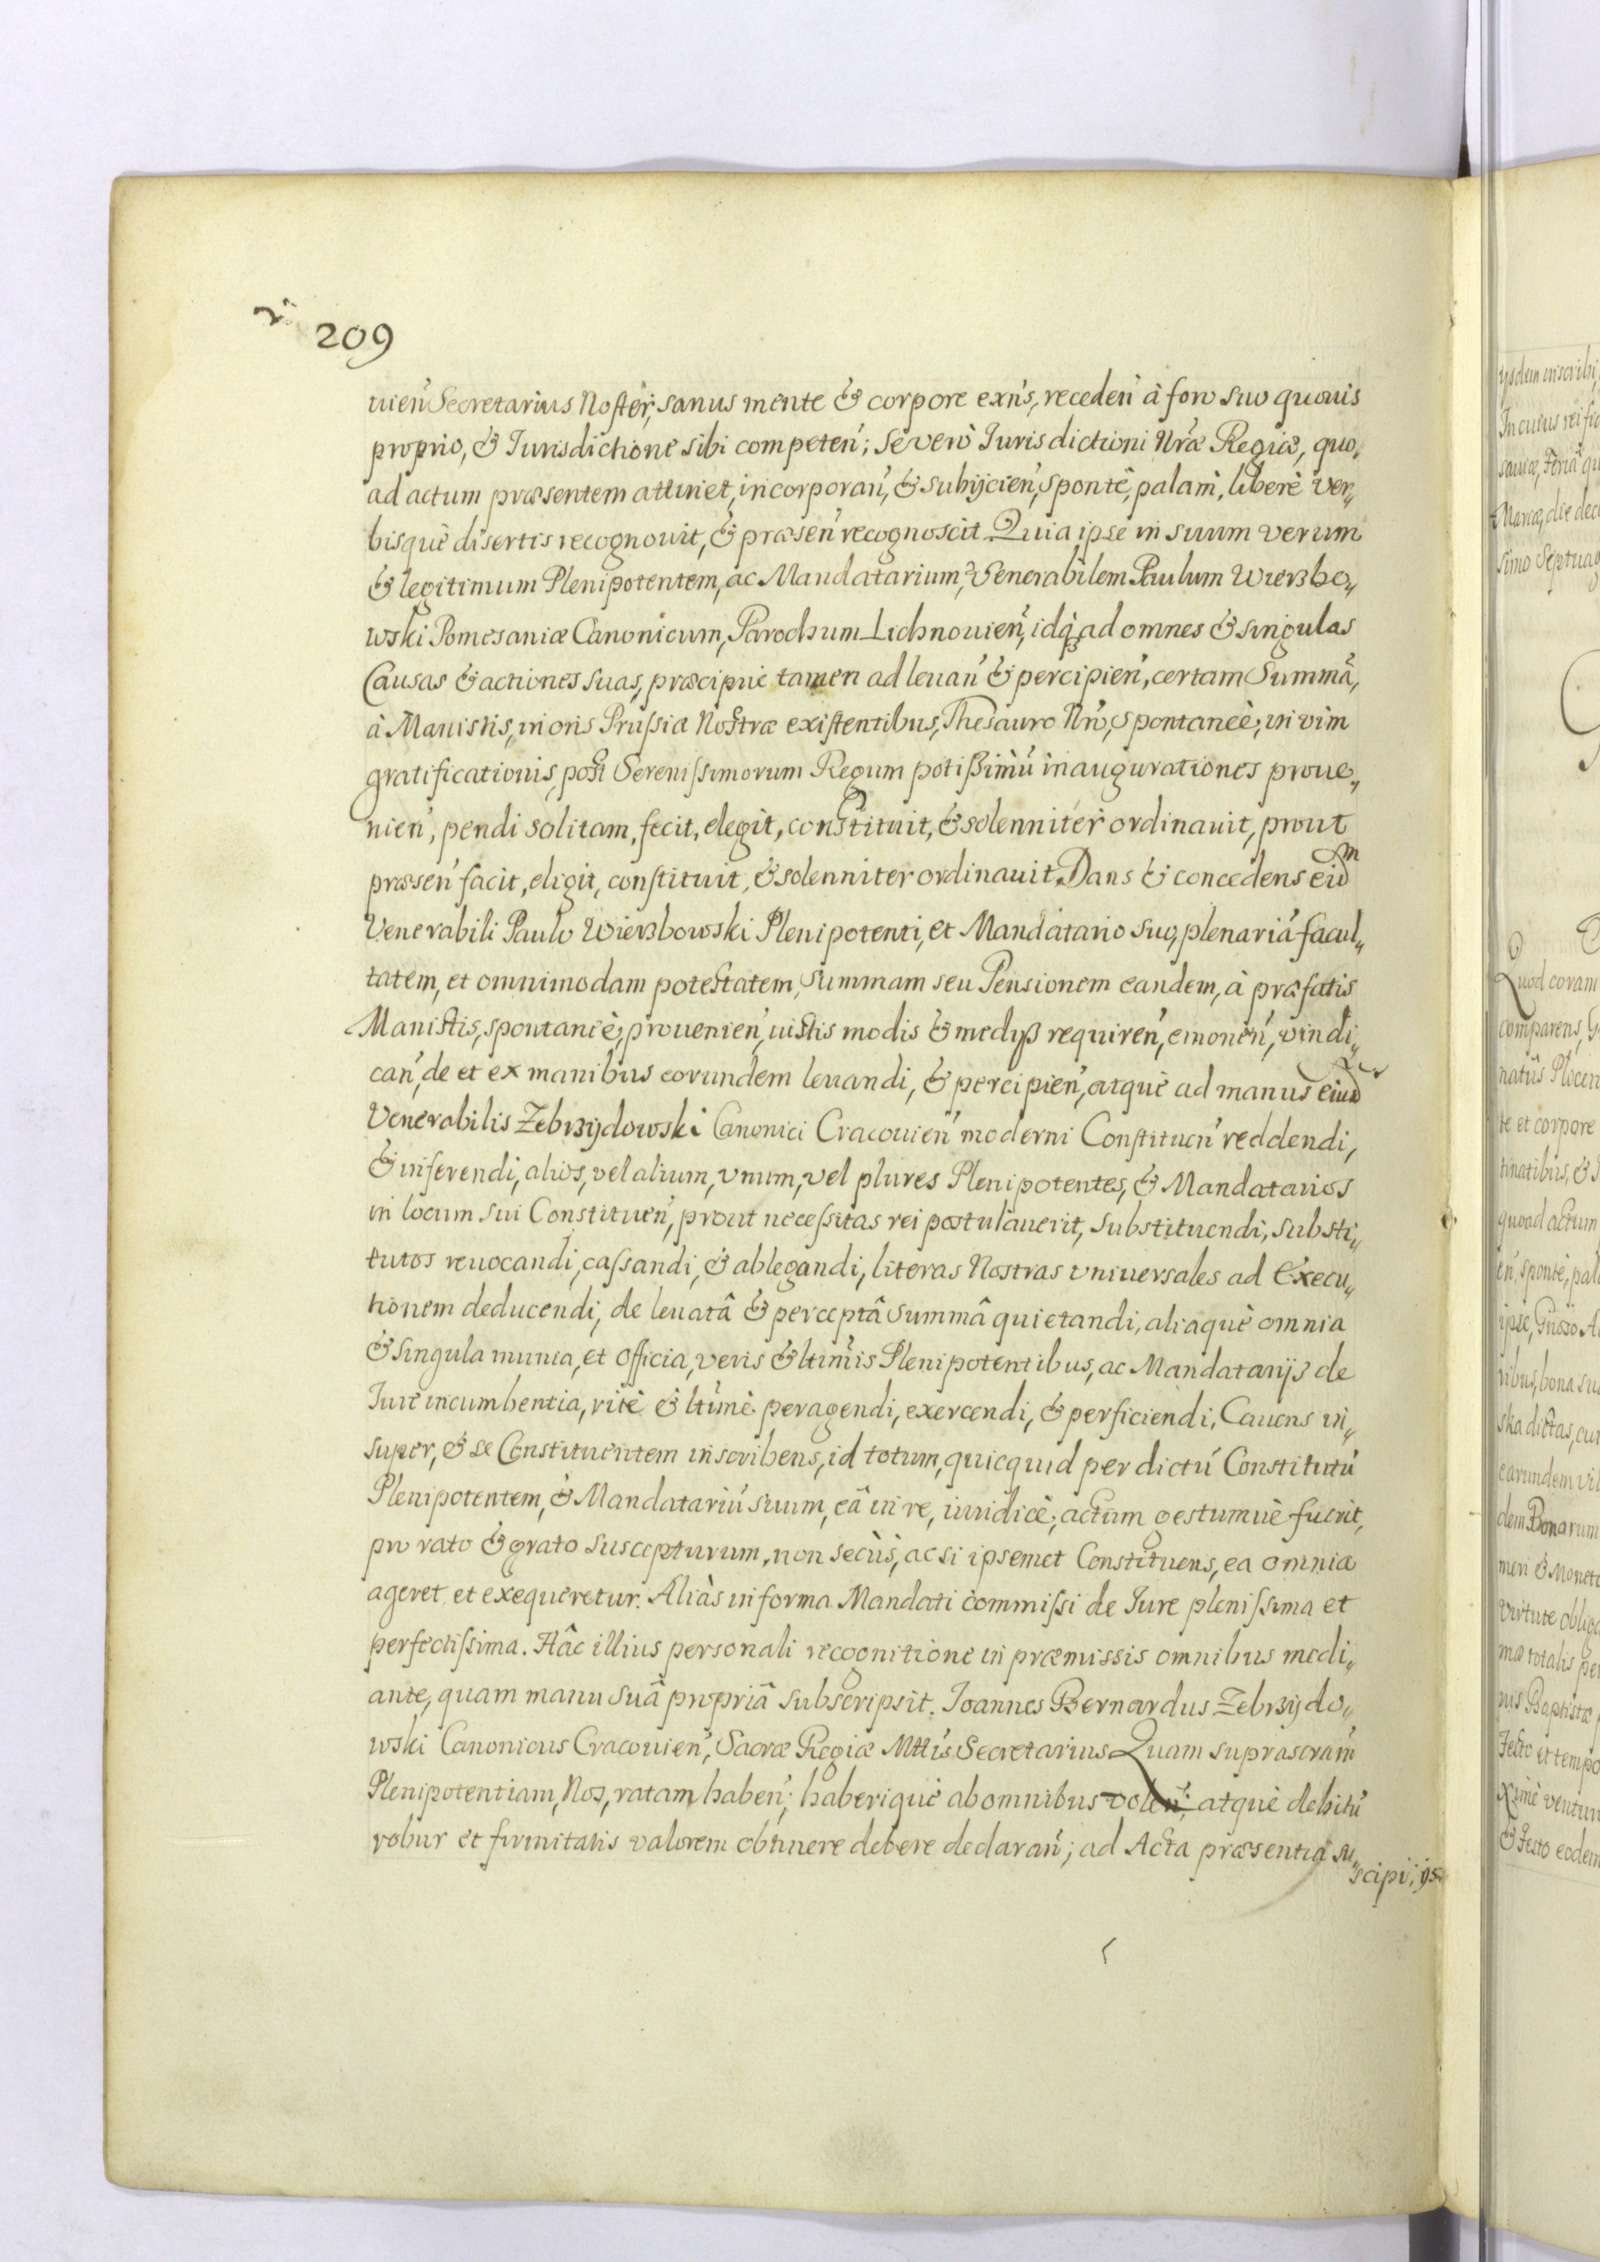 209
uień Secretarius Noster, sanus mente & corpore exn̄s, receden̄ à foro suo quouis
proprio, & Iurisdictione sibi competen̄; se verò Iurisdictioni Nr̄æ Regiæ, quo„
ad actum præsentem attinet, incorporan̄, & subijcien̄, spontè, palam̀, liberè ver„
bisquè disertis recognouit, & præsen̄ recognoscit. Quia ipse in suum verum
& legitimum Plenipotentem, ac Mandatarium, Venerabilem Paulum Wierzbo„
wski Pomesaniæ Canonicum, Parochum Lichnouien̄, idq̀ ad omnes & singulas
Causas & actiones suas, præcipuè tamen ad leuan̄ & percipien̄, certam Summā,
à Manistis, in oris Prussiæ Nostræ existentibus, Thesauro Nr̄o, spontaneè, in vim
gratificationis, post Serenissimorum Regum potissimū inaugurationes proue„
nien̄, pendi solitam, fecit, elegit, constituit, & solenniter ordinauit, prout
præsen̄ facit, eligit, constituit, & solenniter ordinauit. Dans & concedens eidm
Venerabili Paulo Wierzbowski Plenipotenti, et Mandatario suo, plenariā facul„
tatem, et omnimodam potestatem, summam seu Pensionem eandem, à præfatis
Manistis, spontaneè, prouenien̄, iustis modis & medijs requiren̄, emonen̄, vindi„
can̄, de et ex manibus eorundem leuandi, & percipien̄, atquè ad manus eiusd
Venerabilis Zebrzydowski Canonici Cracouien̄ moderni Constituen̄ reddendi,
& inferendi, alios, vel alium, vnum, vel plures Plenipotentes, & Mandatarios
in locum sui Constituen̄, prout necessitas rei postulauerit, substituendi, substi„
tutos reuocandi, cassandi, & ablegandi, literas Nostras vniuersales ad Execu„
tionem deducendi, de leuatâ & perceptâ summâ quietandi, aliaquè omnia
& singula munia, et officia, veris & ltimis Plenipotentibus, ac Mandatarijs de
Iure incumbentia, ritè & ltimè peragendi, exercendi, & perficiendi. Cauens in„
super, & se Constituentem inscribens, id totum, quicquid per dictū Constitutū
Plenipotentem, & Mandatariū suum, eâ in re, iuridicè, actum gestumuè fuerit,
pro rato & grato suscepturum, non secùs, ac si ipsemet Constituens, ea omnia
ageret et exequeretur. Aliàs in forma Mandati commissi de Iure plenissima et
perfectissima. Hâc illius personali recognitione in præmissis omnibus medi„
ante, quam manu suâ propriâ subscripsit. Ioannes Bernardus Zebrzydo„
wski Canonicus Cracouien̄, Sacræ Regiæ Mttis Secretarius Quam suprascram̄
Plenipotentiam, Nos, ratam haben̄; haberiquè ab omnibus volen̄; atquè debitū
robur et firmitatis valorem obtinere debere declaran̄; ad Acta præsentia su„
scipi, ijs